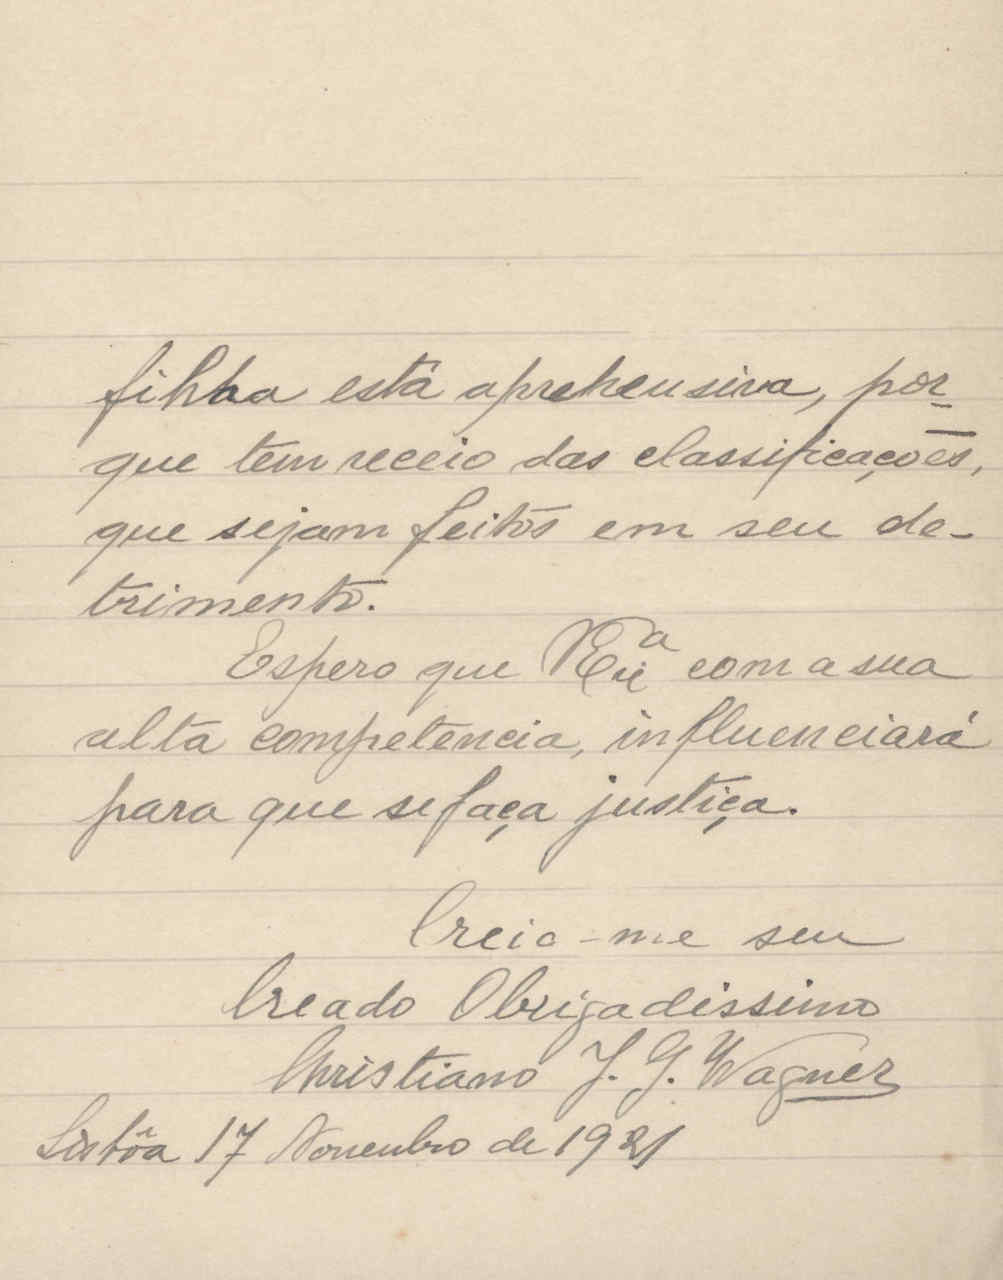 filha está aprehensiva, por-
que tem receio das classificações,
que sejam feitos em seu de-
trimento.
Espero que V Exª com a sua
alta competencia, influenciará
para que se faça justiça.
Creia-me seu
Creado Obrigadissimo
Christiano J. G. Wagner
Lisbôa 17 Novembro de 1921